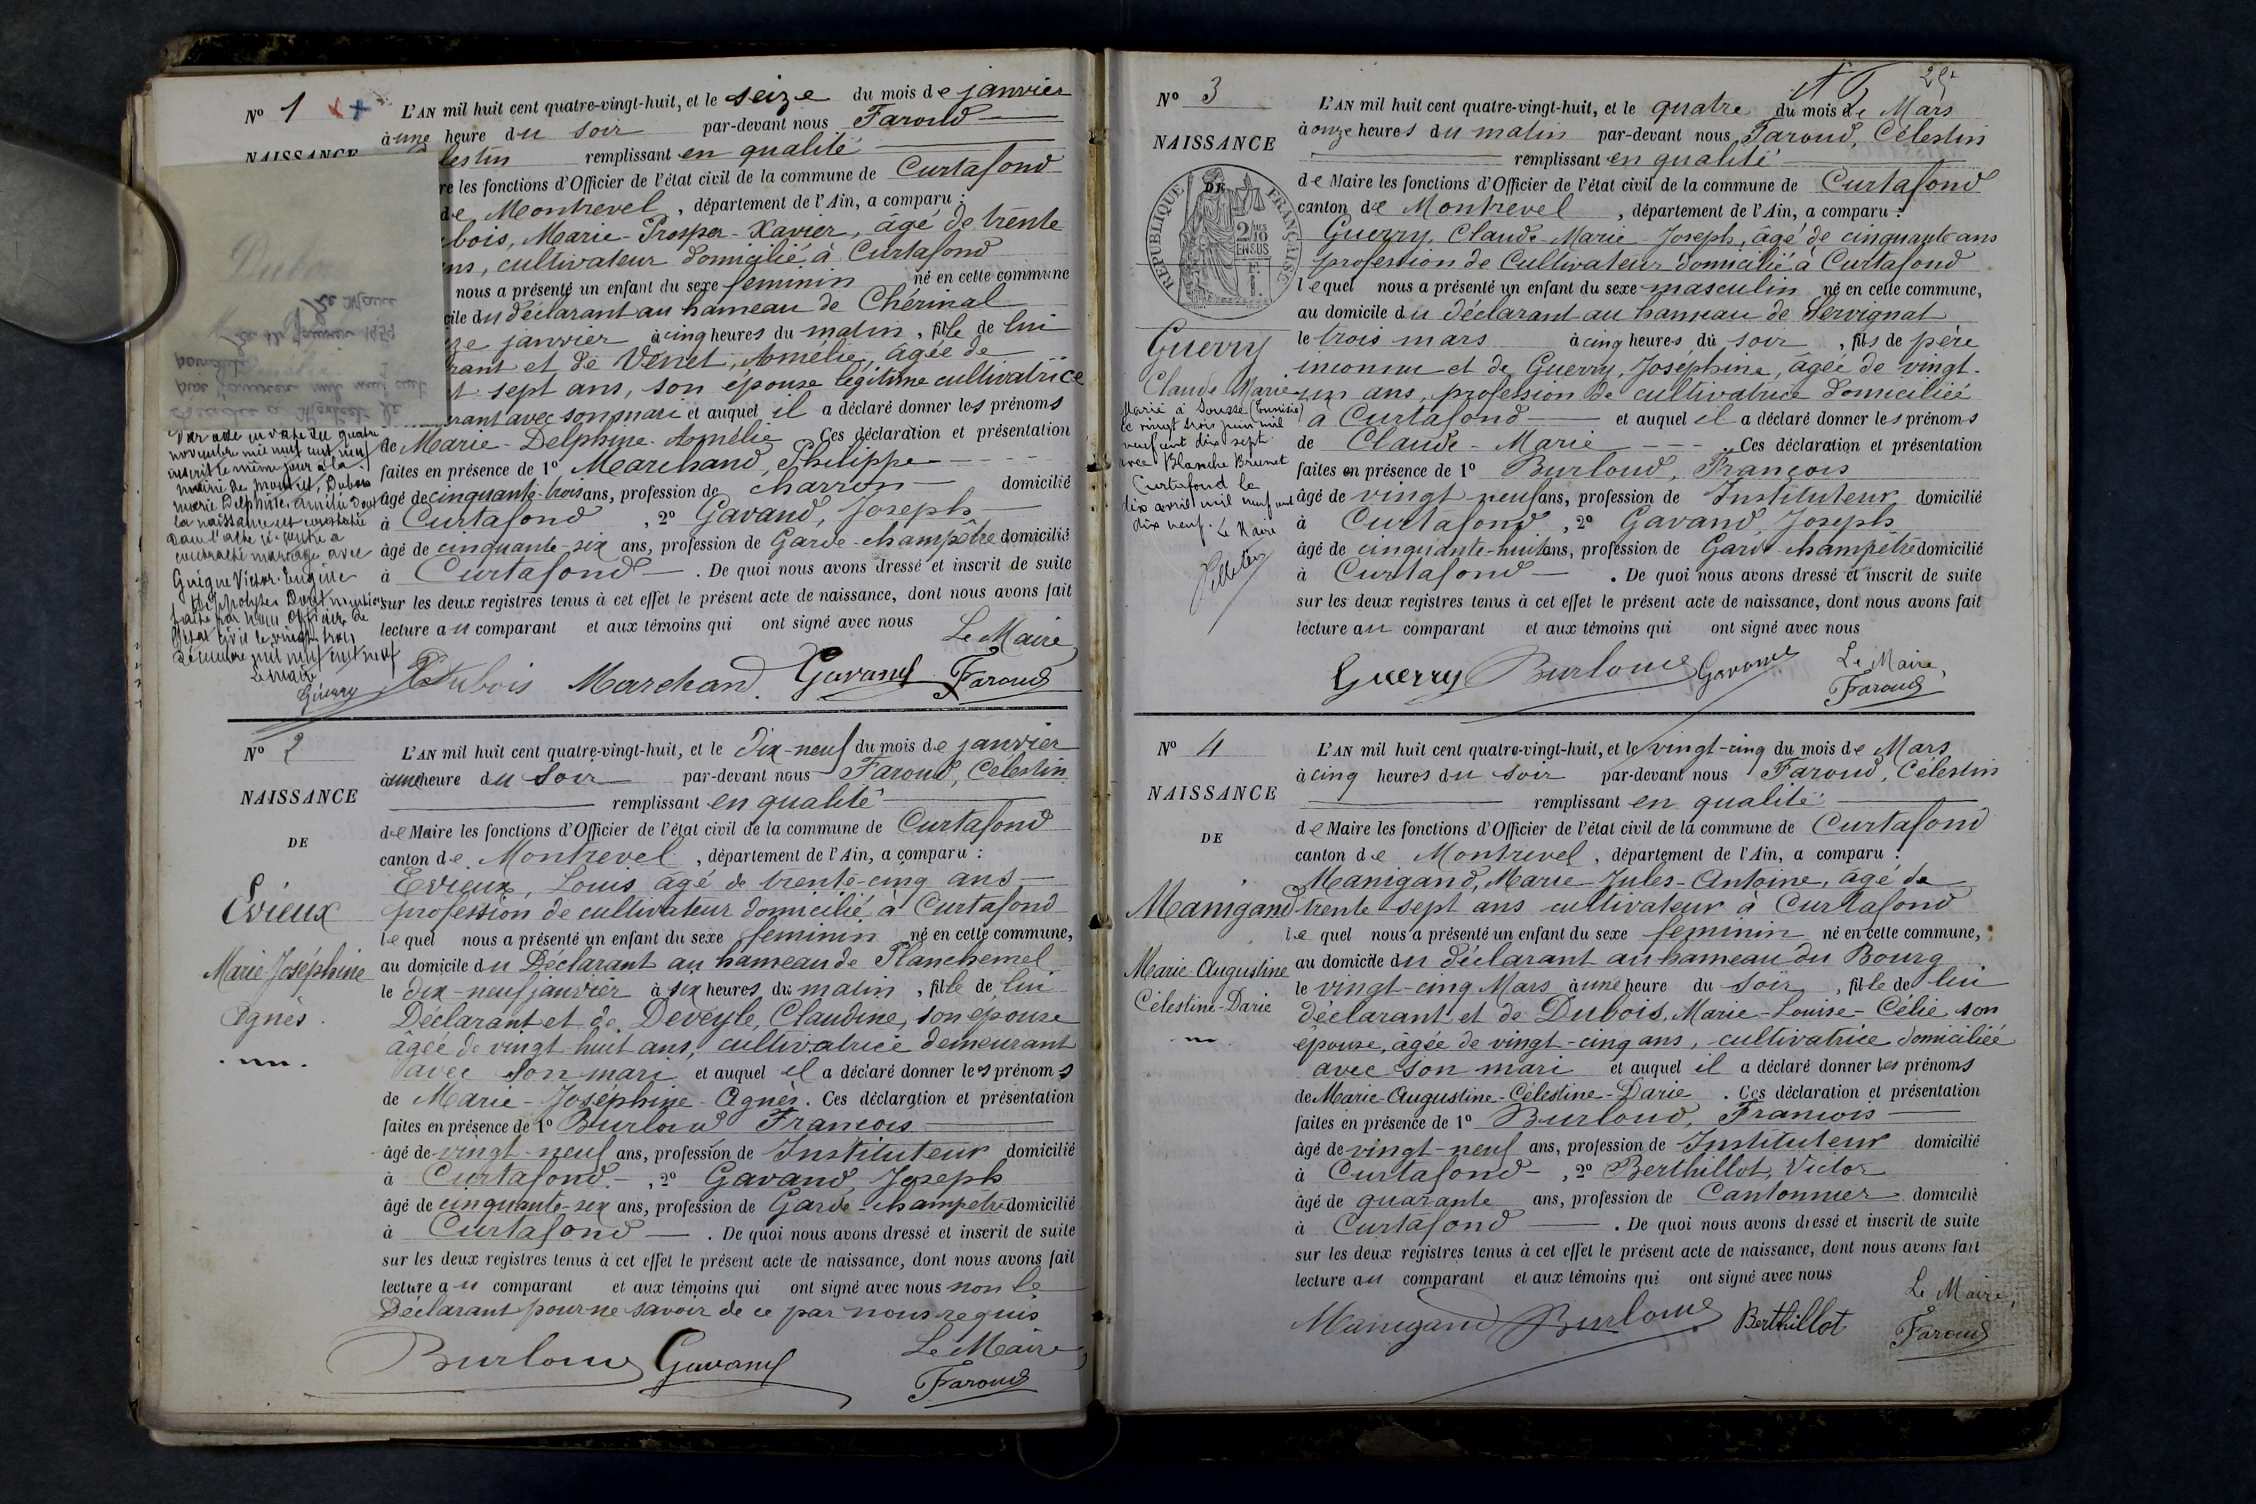 N° 1
NAISSANCE
L'AN mil huit cent quatre-vingt-huit, et le seize du mois de janvier
à une heure du soir par-devant nous Faroud
lestin remplissant en qualité
re les fonctions d'Officier de l'état civil de la commune de Curtafond
de Montrevel, département de l'Ain, a comparu :
bois, Marie-Prosper-Xavier, âgé de trente
ns, cultivateur domicilié à Curtafond
nous a présenté un enfant du sexe feminin né en cette commune
cile du déclarant au hameau de Chérinal
ze janvier à cinq heures du matin, fille de lui
rant et de Venet, Amélie, âgée de
t sept ans, son épouse légitime cultivatrice
rant avec son mari et auquel il a déclaré donner les prénoms
de Marie-Delphine-Amélie Ces déclaration et présentation
faites en présence de 1° Marchand, Philippe
âgé de cinquante-trois ans, profession de charron domicilié
à Curtafond, 2° Gavand, Joseph
âgé de cinquante-six ans, profession de Garde-champêtre domicilié
à Curtafond. De quoi nous avons dressé et inscrit de suite
sur les deux registres tenus à cet effet le présent acte de naissance, dont nous avons fait
lecture au comparant et aux témoins qui ont signé avec nous
Le Maire
Dubois Marchand. Gavand Faroud
Le Maire
Par acte en date du quatre
novembre mil neuf cent neuf
inscrit le même jour à la
mairie de , Dubois
Marie Delphine Amélie dont
la naissance est constatée
dans l'acte ci-contre a
contracté mariage avec
Guigue Victor-Eugène
Hippolyte. Dont mention
faite par nous Officier de
l'état civil le vingt trois
décembre mil neuf cent neuf
Le maire
Guerry
N° 2
NAISSANCE
DE
Evieux
Marie Joséphine
Agnès.
L'AN mil huit cent quatre-vingt-huit, et le dix-neuf du mois de janvier
à une heure du soir par-devant nous Faroud, Célestin
remplissant en qualité
de Maire les fonctions d'Officier de l'état civil de la commune de Curtafond
canton de Montrevel, département de l'Ain, a comparu :
Evieux, Louis âgé de trente-cinq ans
profession de cultivateur domicilié à Curtafond
lequel nous a présenté un enfant du sexe feminin né en cette commune,
au domicile du Déclarant au hameau de Planchemel
le dix-neuf janvier à six heures du matin, fille de lui
Déclarant et de Deveyle, Claudine, son épouse
âgée de vingt huit ans, cultivatrice demeurant
avec son mari et auquel il a déclaré donner les prénoms
de Marie-Joséphine-Agnès. Ces déclaration et présentation
faites en présence de 1° Burloud François
âgé de vingt-neuf ans, profession de Instituteur domicilié
à Curtafond, 2° Gavand, Joseph
âgé de cinquante-six ans, profession de Garde-champêtre domicilié
à Curtafond. De quoi nous avons dressé et inscrit de suite
sur les deux registres tenus à cet effet le présent acte de naissance, dont nous avons fait
lecture au comparant et aux témoins qui ont signé avec nous non le
Déclarant pour ne savoir de ce par nous requis
Le Maire
Burloud Gavand Faroud
N° 3
NAISSANCE
DE
RÉPUBLIQUE FRANÇAISE
Guerry
Claude Marie
Marié à Sousse (Tunisie)
le vingt trois juin mil
neuf cent dix sept
avec Blanche Brunet
Curtafond le
dix avril mil neuf cent
dix neuf. Le Maire
L'AN mil huit cent quatre-vingt-huit, et le quatre du mois de Mars
à onze heures du matin par-devant nous Faroud, Célestin
remplissant en qualité
de Maire les fonctions d'Officier de l'état civil de la commune de Curtafond
canton de Montrevel, département de l'Ain, a comparu :
Guerry, Claude Marie Joseph, âgé de cinquante ans
profession de Cultivateur domicilié à Curtafond
lequel nous a présenté un enfant du sexe masculin né en cette commune,
au domicile du déclarant au hameau de Servignat
le trois mars à cinq heures du soir, fils de père
inconnu et de Guerry, Joséphine, âgée de vingt-
un ans, profession de cultivatrice domiciliée
à Curtafond et auquel il a déclaré donner les prénoms
de Claude-Marie. Ces déclaration et présentation
faites en présence de 1° Burloud, François
âgé de vingt neuf ans, profession de Instituteur domicilié
à Curtafond, 2° Gavand Joseph
âgé de cinquante-huit ans, profession de Garde-champêtre domicilié
à Curtafond. De quoi nous avons dressé et inscrit de suite
sur les deux registres tenus à cet effet le présent acte de naissance, dont nous avons fait
lecture au comparant et aux témoins qui ont signé avec nous
Le Maire
Guerry Burloud Gavand Faroud
N° 4
NAISSANCE
DE
Manigand
Marie-Augustine
Célestine-Darie
L'AN mil huit cent quatre-vingt-huit, et le vingt-cinq du mois de Mars
à cinq heures du soir par-devant nous Faroud, Célestin
remplissant en qualité
de Maire les fonctions d'Officier de l'état civil de la commune de Curtafond
canton de Montrevel, département de l'Ain, a comparu :
Manigand, Marie-Jules-Antoine, âgé de
trente-sept ans cultivateur à Curtafond
lequel nous a présenté un enfant du sexe feminin né en cette commune,
au domicile du déclarant au hameau du Bourg
le vingt-cinq Mars à une heure du soir, fille de lui
déclarant et de Dubois, Marie-Louise-Célie son
épouse, âgée de vingt-cinq ans, cultivatrice domiciliée
avec son mari et auquel il a déclaré donner les prénoms
de Marie-Augustine-Célestine-Darie. Ces déclaration et présentation
faites en présence de 1° Burloud, François
âgé de vingt-neuf ans, profession de Instituteur domicilié
à Curtafond, 2° Berthillot, Victor
âgé de quarante ans, profession de Cantonnier domicilié
à Curtafond. De quoi nous avons dressé et inscrit de suite
sur les deux registres tenus à cet effet le présent acte de naissance, dont nous avons fait
lecture au comparant et aux témoins qui ont signé avec nous
Le Maire,
Manigand Burloud Berthillot Faroud